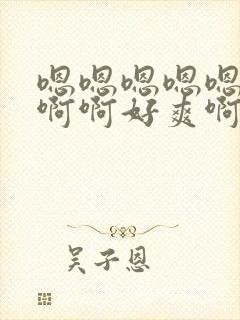 嗯嗯嗯嗯嗯
啊啊好爽啊
吴子恩